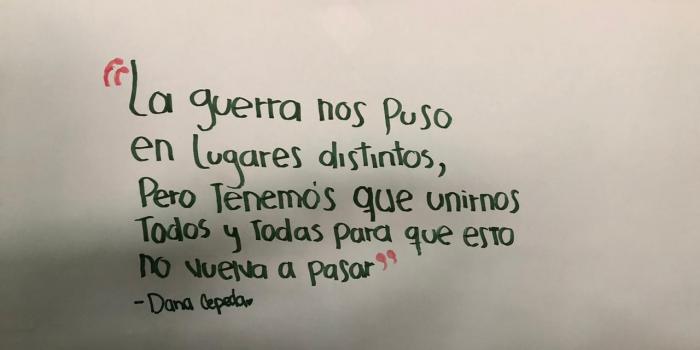 “La guerra nos puso
en lugares distintos,
Pero Tenemos que unirnos
Todos y Todas para que esto
no vuelva a pasar”
- Dana Cepeda